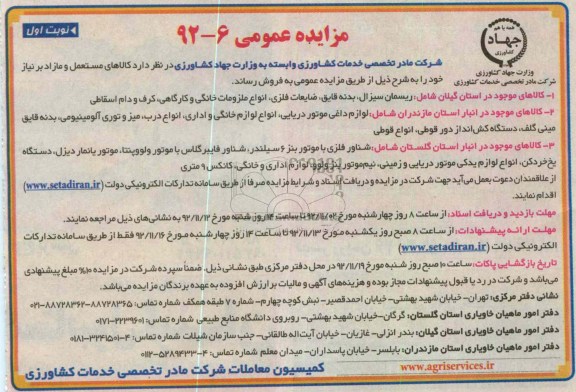 نوبت اول
مزایده عمومی ۶-۹۲
همه با هم
جهاد
کشاورزی
وزارت جهاد کشاورزی
شرکت مادر تخصصی خدمات کشاورزی
شرکت مادر تخصصی خدمات کشاورزی وابسته به وزارت جهاد کشاورزی در نظر دارد کالاهای مستعمل و مازاد بر نیاز
خود را به شرح ذیل از طریق مزایده عمومی به فروش رساند.
۱- کالاهای موجود در استان گیلان شامل: ریسمان سیزال، بدنه قایق، ضایعات فلزی، انواع ملزومات خانگی و کارگاهی، کرف و دام اسقاطی
۲- کالاهای موجود در انبار استان مازندران شامل: لوازم داغی موتور دریایی، انواع لوازم خانگی و اداری، انواع درب، میز و توری آلومینیومی، بدنه قایق
مینی گلف، دستگاه کش‌انداز دور قوطی، انواع قوطی
۳- کالاهای موجود در انبار استان گلستان شامل: شناور فلزی با موتور بنز ۶ سیلندر، شناور فایبرگلاس با موتور ولووپنتا، موتور یانمار دیزل، دستگاه
یخ‌خردکن، انواع لوازم یدکی موتور دریایی و زمینی، نیم‌موتور بنز ولوو، لوازم اداری و خانگی، کانکس ۹ متری
از علاقمندان دعوت بعمل می‌آید جهت شرکت در مزایده و دریافت اسناد و شرایط مزایده صرفاً از طریق سامانه تدارکات الکترونیکی دولت (www.setadiran.ir)
اقدام نمایند.
مهلت بازدید و دریافت اسناد: از ساعت ۸ روز چهارشنبه مورخ ۹۲/۱۱/۰۲ تا ساعت ۱۴ روز شنبه مورخ ۹۲/۱۱/۱۲ به نشانی‌های ذیل مراجعه نمایند.
مهلت ارائه پیشنهادات: از ساعت ۸ صبح روز یکشنبه مورخ ۹۲/۱۱/۱۳ تا ساعت ۱۴ روز چهارشنبه مورخ ۹۲/۱۱/۱۶ فقط از طریق سامانه تدارکات
الکترونیکی دولت (www.setadiran.ir)
تاریخ بازگشایی پاکات: ساعت ۱۰ صبح روز شنبه مورخ ۹۲/۱۱/۱۹ در محل دفتر مرکزی طبق نشانی ذیل. ضمناً سپرده شرکت در مزایده ۱۰% مبلغ پیشنهادی
می‌باشد و شرکت در رد یا قبول پیشنهادات مجاز بوده و هزینه‌های آگهی و مالیات بر ارزش افزوده به عهده برندگان مزایده می‌باشد.
نشانی دفتر مرکزی: تهران- خیابان شهید بهشتی- خیابان احمدقصیر- نبش کوچه چهارم- شماره ۷ طبقه همکف شماره تماس: ۸۸۷۲۸۳۶۵-۸۸۷۲۸۳۶۲-۰۲۱
دفتر امور ماهیان خاویاری استان گلستان: گرگان- خیابان شهید بهشتی- روبروی دانشگاه منابع طبیعی شماره تماس: ۲۲۳۹۶۰۱-۰۱۷۱
دفتر امور ماهیان خاویاری استان گیلان: بندر انزلی- غازیان- خیابان آیت‌اله طالقانی- جنب سازمان شیلات شماره تماس: ۴-۳۲۴۱۵۰۱-۰۱۸۱
دفتر امور ماهیان خاویاری استان مازندران: بابلسر- خیابان پاسداران- میدان معلم شماره تماس: ۴-۵۲۸۹۲۳۳-۰۱۱۲
کمیسیون معاملات شرکت مادر تخصصی خدمات کشاورزی
www.agriservices.ir